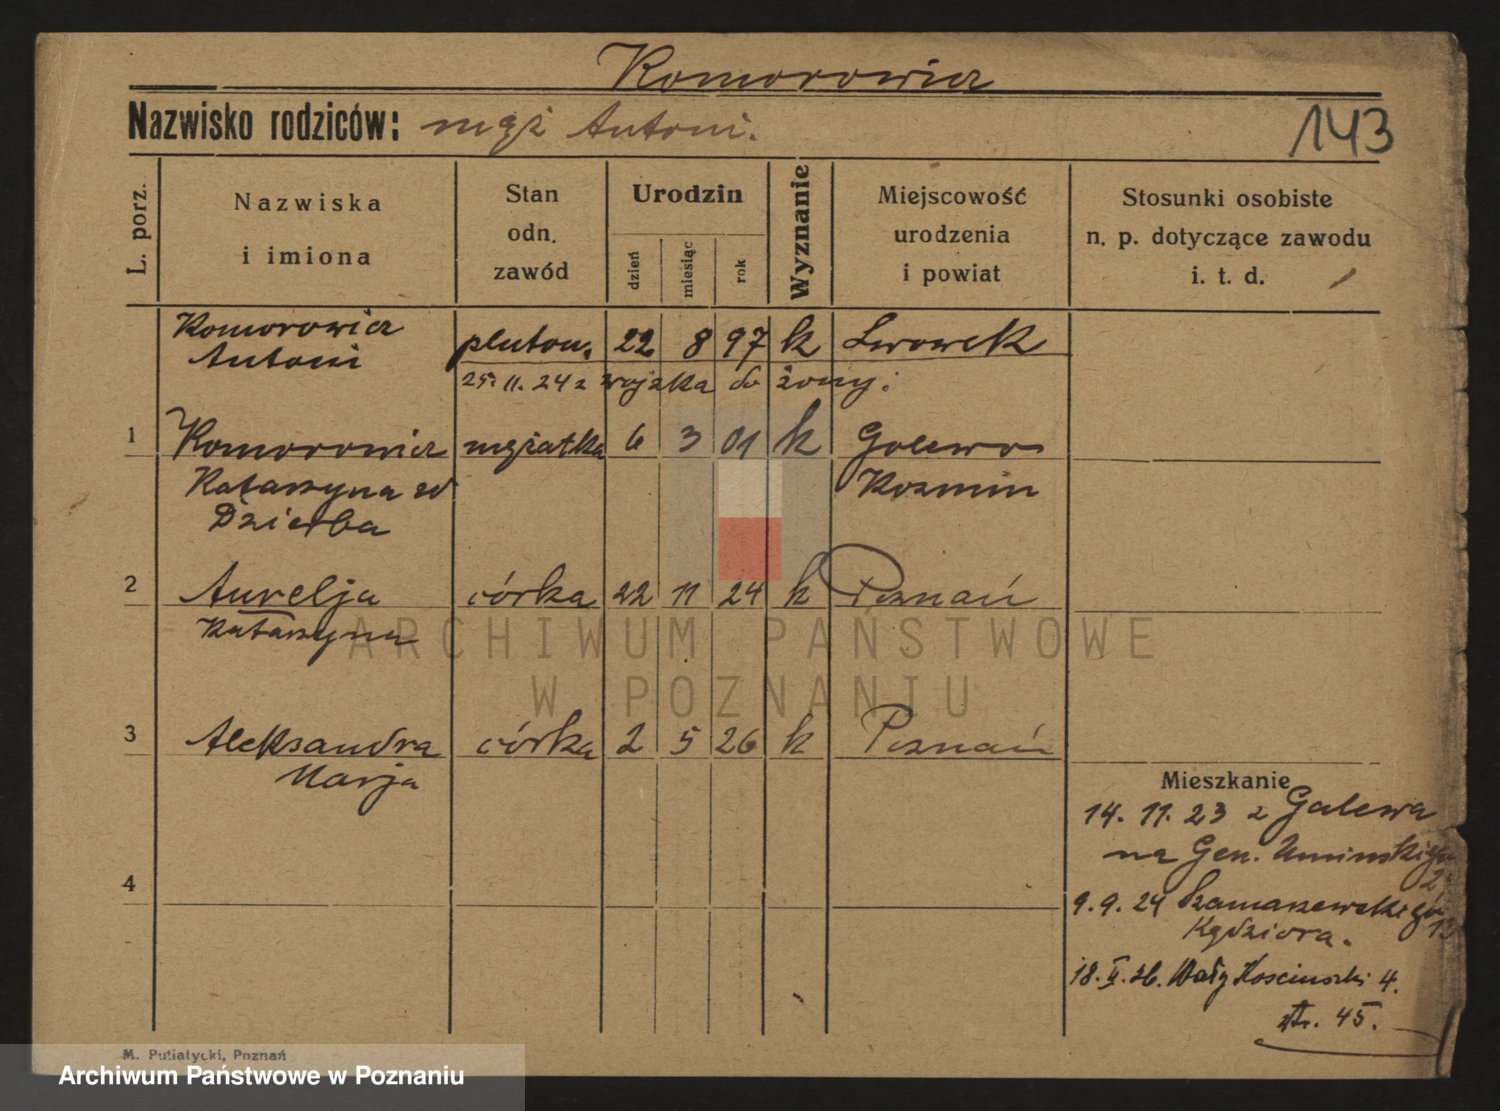 Komorowicz
Nazwisko rodziców: mąż Antoni.
143
L. porz.
Nazwiska
i imiona
Stan
odn.
zawód
Urodzin
dzień
miesiąc
rok
Wyznanie
Miejscowość
urodzenia
i powiat
Stosunki osobiste
n. p. dotyczące zawodu
i. t. d.
Komorowicz pluton. 22 8 97 k Lwowek
Antoni
25. 11. 24 z wojska do żony.
1 Komorowicz mężatka 6 3 01 k Galewo
Katarzyna zd Kozmin
Dzierba
2 Aurelja córka 22 11 24 k Poznań
Katarzyna
3 Aleksandra córka 2 5 26 k Poznań
Marja
Mieszkanie
14. 11. 23 z Galewa
na Gen. Uminskiego
2
4
9. 9. 24 Szamarzewskiego 13
Kędziora.
18. V. 26. Wały Kosciuszki 4.
str. 45.
M. Putiatycki, Poznań
ARCHIWUM PAŃSTWOWE
W POZNANIU
Archiwum Państwowe w Poznaniu